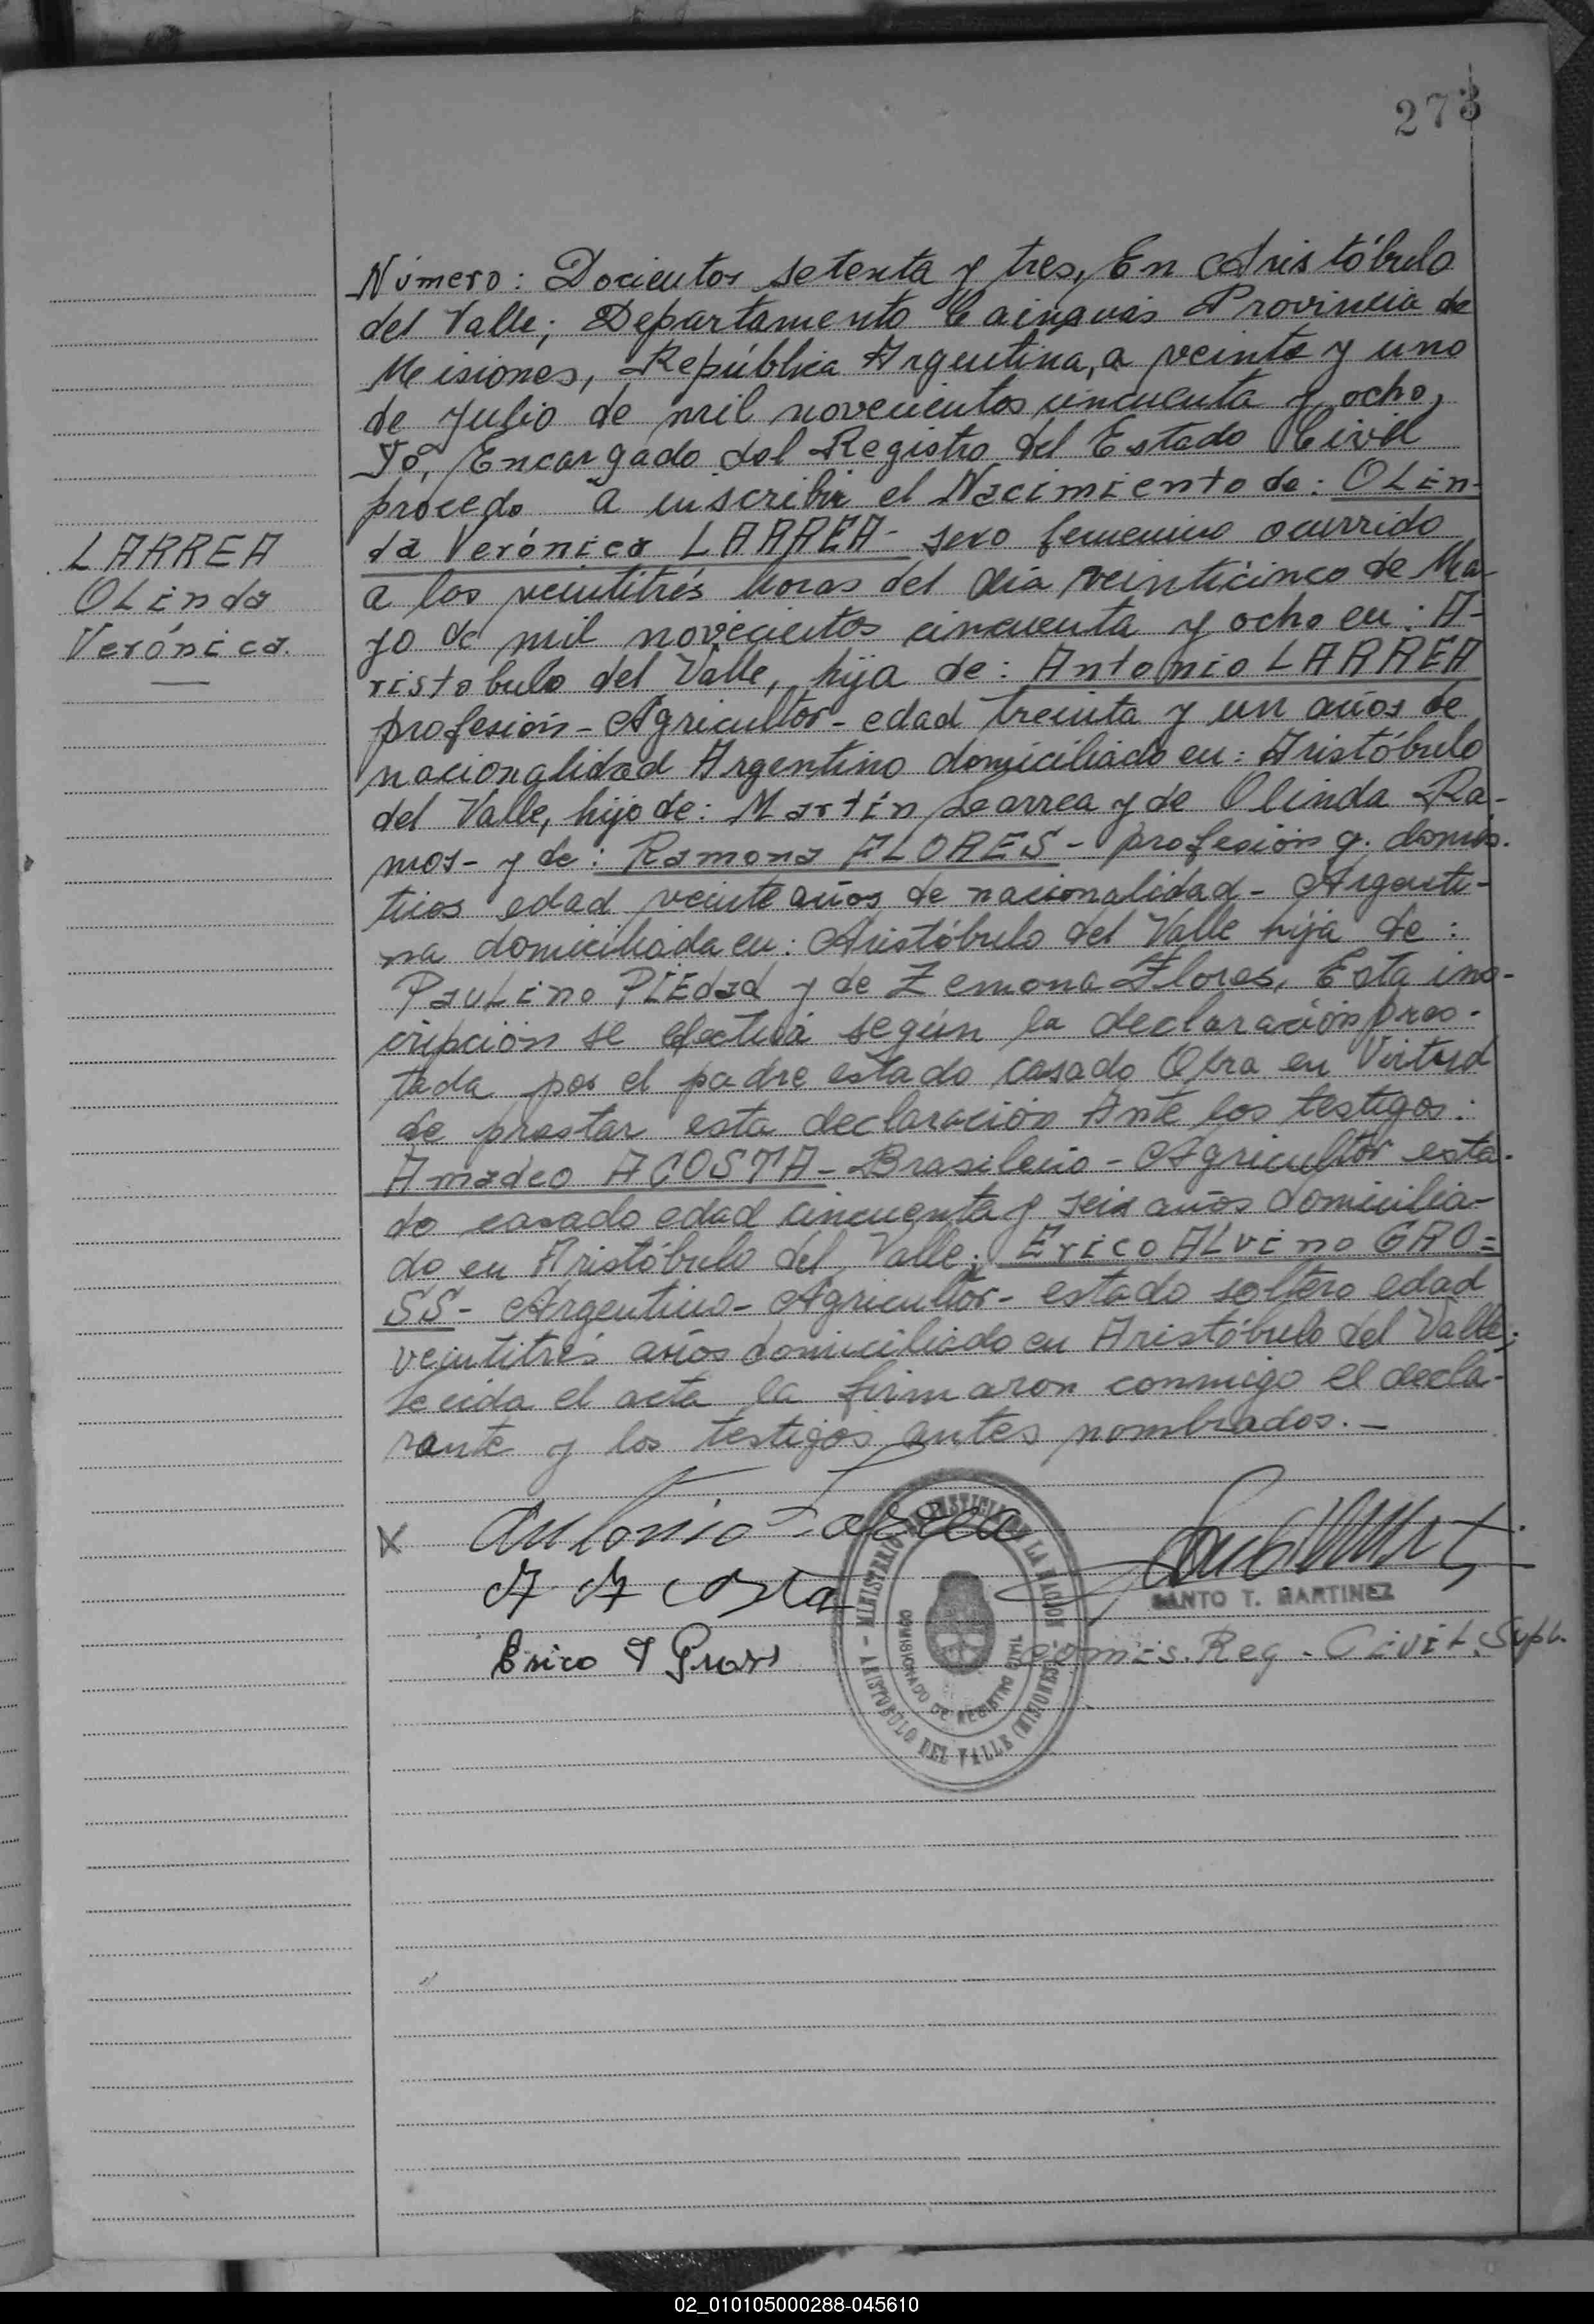 273
Número: Docientos setenta y tres, En Aristóbulo
del Valle; Departamento Cainguás Provincia de
Misiones, República Argentina, a veinte y uno
de Julio de mil novecientos cincuenta y ocho,
Yó, Encargado del Registro del Estado Civil
procedo a inscribir el Nacimiento de: OLin-
da Verónica LARREA- sexo femenino ocurrido
a las veintitrés horas del día veinticinco de Ma-
yo de mil novecientos cincuenta y ocho en: A-
ristobulo del Valle, hija de: Antonio LARREA
profesión - Agricultor - edad treinta y un años de
nacionalidad Argentino domiciliado en: Aristóbulo
del Valle, hijo de: Martín Larrea y de Olinda Ra-
mos - y de: Ramona FLORES - profesión q. domés-
ticos edad veinte años de nacionalidad - Argenti-
na domiciliada en: Aristóbulo del Valle hija de:
PauLino PiEdad y de Zemona Flores, Esta ins-
cripción se efectúa según la declaración pres-
tada por el padre estado casado Obra en Virtud
de prestar esta declaración Ante los testigos:
Amadeo ACOSTA - Brasileño - Agricultor esta-
do casado edad cincuenta y seis años domicilia-
do en Aristóbulo del Valle; Erico ALvino GRO=
SS - Argentino - Agricultor - estado soltero edad
veintitrés años domiciliado en Aristóbulo del Valle;
Leída el acta la firmaron conmigo el decla-
rante y los testigos antes nombrados. -
LARREA
OLinda
Verónica.
X Antonio Larrea
A Acosta
SANTO T. MARTINEZ
Erico A Gross
Comis. Reg. Civil. Supl.
MINISTERIO DE JUSTICIA DE LA NACION
COMISIONADO DE REGISTRO CIVIL
ARISTOBULO DEL VALLE (MISIONES)
02_010105000288-045610